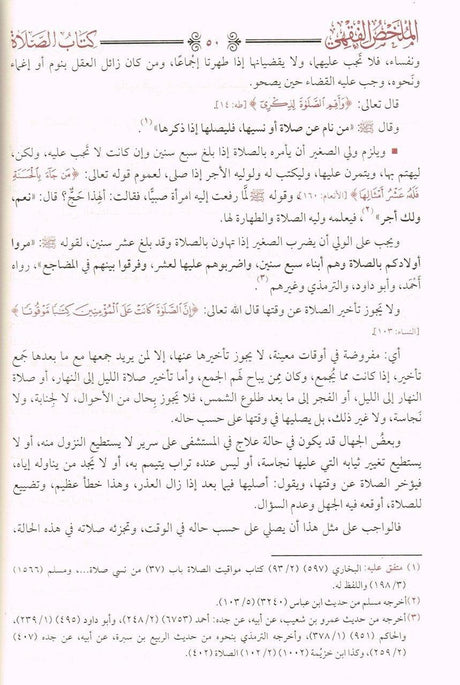 الملخص الفقهي ٥٠ كتاب الصلاة
ونفساء، فلا تجب عليهما، ولا يقضيانها إذا طهرتا إجماعًا، ومن كان زائل العقل بنوم أو إغماء
ونحوه، وجب عليه القضاء حين يصحو.
قال تعالى: ﴿وَأَقِمِ الصَّلَوٰةَ لِذِكْرِيٓ﴾ [طه: ١٤].
وقال ﷺ: «من نام عن صلاة أو نسيها، فليصلها إذا ذكرها»(١).
▪ ويلزم ولي الصغير أن يأمره بالصلاة إذا بلغ سبع سنين وإن كانت لا تجب عليه، ولكن،
ليهتم بها، ويتمرن عليها، وليكتب له ولوليه الأجر إذا صلى، لعموم قوله تعالى: ﴿مَن جَآءَ بِالْحَسَنَةِ
فَلَهُۥ عَشْرُ أَمْثَالِهَا﴾ [الأنعام: ١٦٠] وقوله ﷺ لمَّا رفعت إليه امرأة صبيًّا، فقالت: ألهذا حَجٌّ؟ قال: «نعم،
ولك أجر»(٢)، فيعلمه وليه الصلاة والطهارة لها.
ويجب على الولي أن يضرب الصغير إذا تهاون بالصلاة وقد بلغ عشر سنين، لقوله ﷺ: «مروا
أولادكم بالصلاة وهم أبناء سبع سنين، واضربوهم عليها لعشر، وفرقوا بينهم في المضاجع»، رواه
أحمد، وأبو داود، والترمذي وغيرهم(٣).
ولا يجوز تأخير الصلاة عن وقتها قال الله تعالى: ﴿إِنَّ الصَّلَوٰةَ كَانَتْ عَلَى الْمُؤْمِنِينَ كِتَٰبًا مَّوْقُوتًا﴾
[النساء: ١٠٣].
أي: مفروضة في أوقات معينة، لا يجوز تأخيرها عنها، إلا لمن يريد جمعها مع ما بعدها جمع
تأخير، إذا كانت مما يُجمع، وكان ممن يباح لهم الجمع، وأما تأخير صلاة الليل إلى النهار، أو صلاة
النهار إلى الليل، أو الفجر إلى ما بعد طلوع الشمس، فلا يجوز بحال من الأحوال، لا لجنابة، ولا
نجاسة، ولا غير ذلك، بل يصليها في وقتها على حسب حاله.
وبعضُ الجهال قد يكون في حالة علاج في المستشفى على سرير لا يستطيع النزول منه، أو لا
يستطيع تغيير ثيابه التي عليها نجاسة، أو ليس عنده تراب يتيمم به، أو لا يجد من يناوله إياه،
فيؤخر الصلاة عن وقتها، ويقول: أصليها فيما بعد إذا زال العذر، وهذا خطأ عظيم، وتضييع
للصلاة، أوقعه فيه الجهل وعدم السؤال.
فالواجب على مثل هذا أن يصلي على حسب حاله في الوقت، وتجزئه صلاته في هذه الحالة،
(١) متفق عليه: البخاري (٥٩٧) (٢/ ٩٣) كتاب مواقيت الصلاة باب (٣٧) من نسي صلاة...، ومسلم (١٥٦٦)
(٣/ ١٩٨) واللفظ له.
(٢) أخرجه مسلم من حديث ابن عباس (٣٢٤٠) (٥/ ١٠٣).
(٣) أخرجه من حديث عمرو بن شعيب، عن أبيه، عن جده: أحمد (٦٧٥٣) (٢/ ٢٤٨)، وأبو داود (٤٩٥) (١/ ٢٣٩)،
والحاكم (٩٥١) (١/ ٣٧٨)، وأخرجه الترمذي بنحوه من حديث الربيع بن سبرة، عن أبيه، عن جده (٤٠٧)
(٢/ ٢٥٩)، وكذا ابن خزيمة (١٠٠٢) (٢/ ١٠٢) الصلاة (٤٠٢).